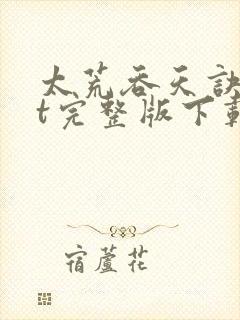 太荒吞天诀
t完整版下载
宿蘆花